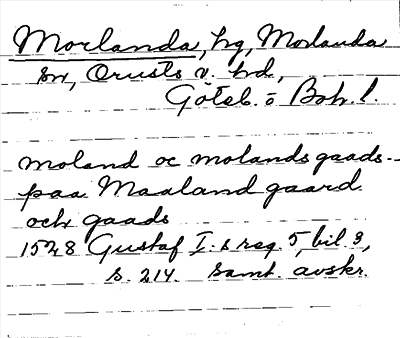 Morlanda, hg, Morlanda
sn, Orusts v. hd,
Göteb. o Boh. l.
moland oc molandsgaads-
paa Maaland gaard
och gaads
1528 Gustaf I:s reg. 5, bil. 3,
s. 214. Samt. avskr.